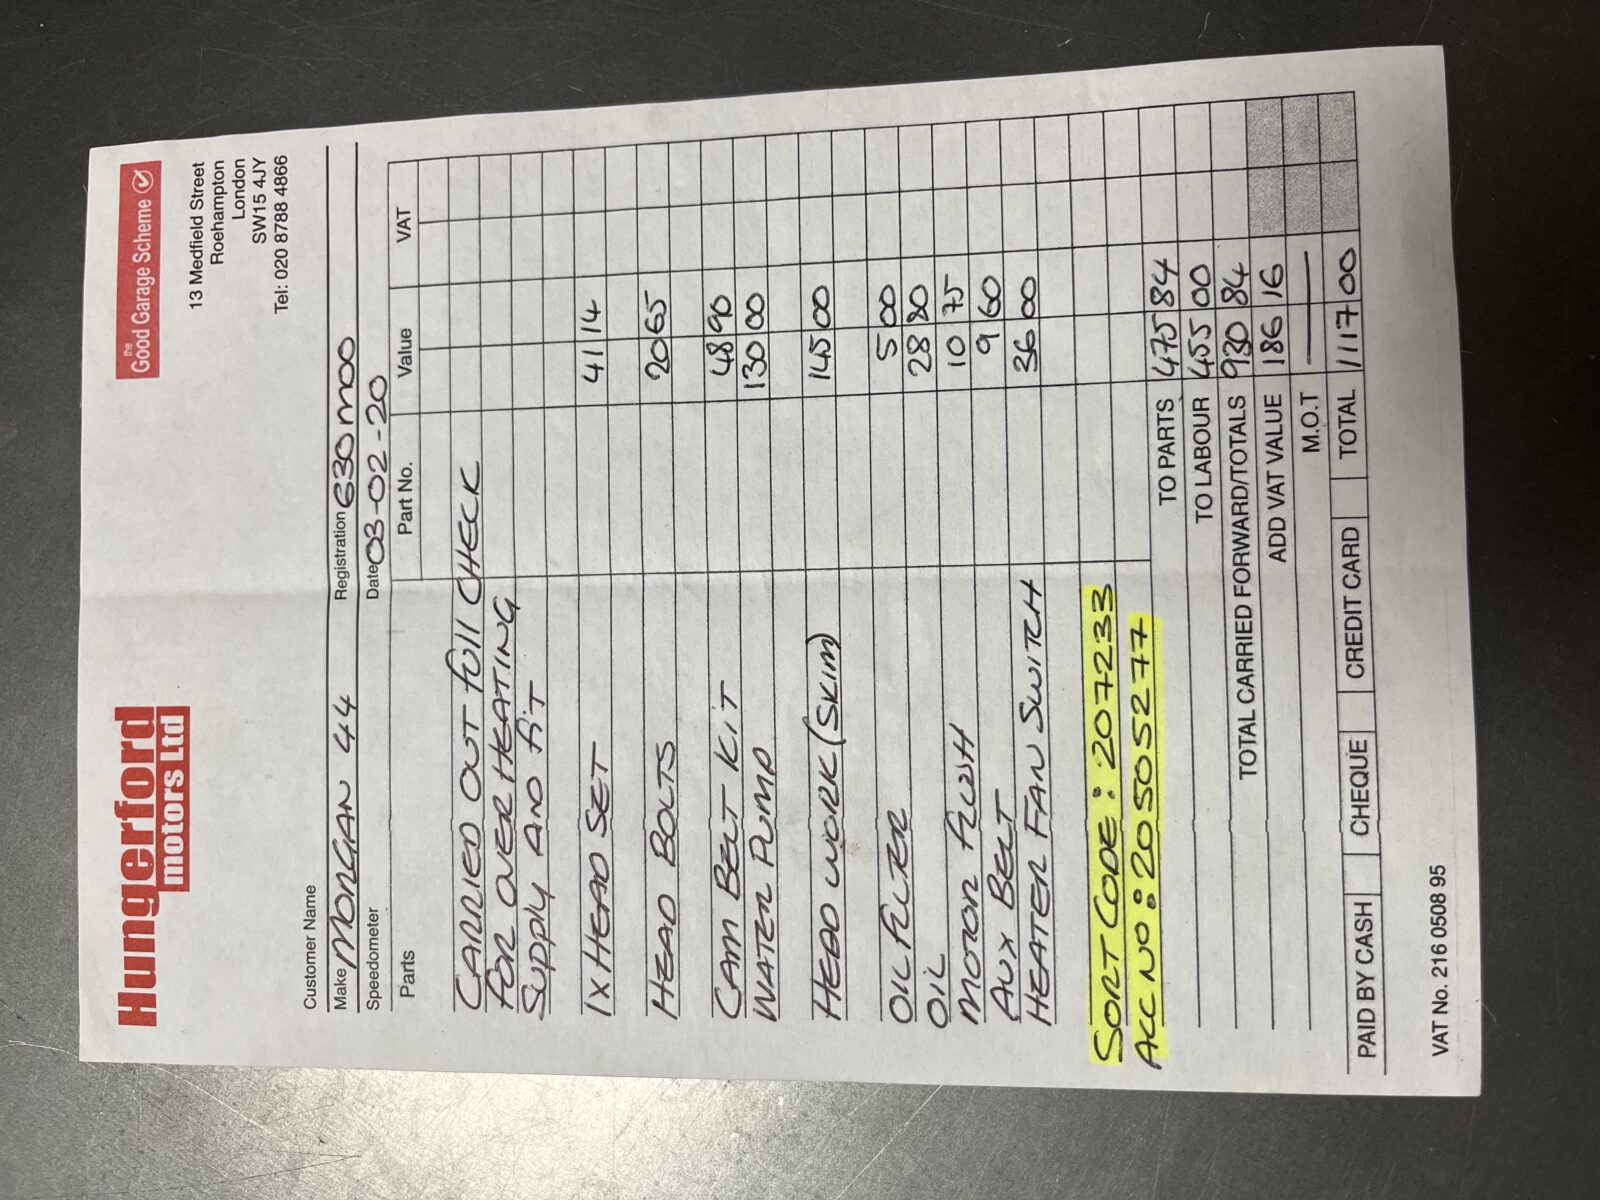 Hungerford
motors Ltd
the
Good Garage Scheme
13 Medfield Street
Roehampton
London
SW15 4JY
Tel: 020 8788 4866
Customer Name
Make MORGAN 44 Registration 630 MOO
Speedometer Date 03-02-20
Parts Part No. Value VAT
CARRIED OUT full CHECK
FOR OVERHEATING
SUPPLY AND fiT
1X HEAD SET 41 14
HEAD BOLTS 20 65
CAM BELT KiT 48 90
WATER PUMP 130 00
HEAD WORK (SKIM) 145 00
OIL FILTER 5 00
OIL 28 80
MOTOR FLUSH 10 75
AUX BELT 9 60
HEATER FAN SWITCH 36 00
SORT CODE: 207233
ACC NO: 20505277
TO PARTS 475 84
TO LABOUR 455 00
TOTAL CARRIED FORWARD/TOTALS 930 84
ADD VAT VALUE 186 16
M.O.T —
PAID BY CASH CHEQUE CREDIT CARD TOTAL 1117 00
VAT No. 216 0508 95